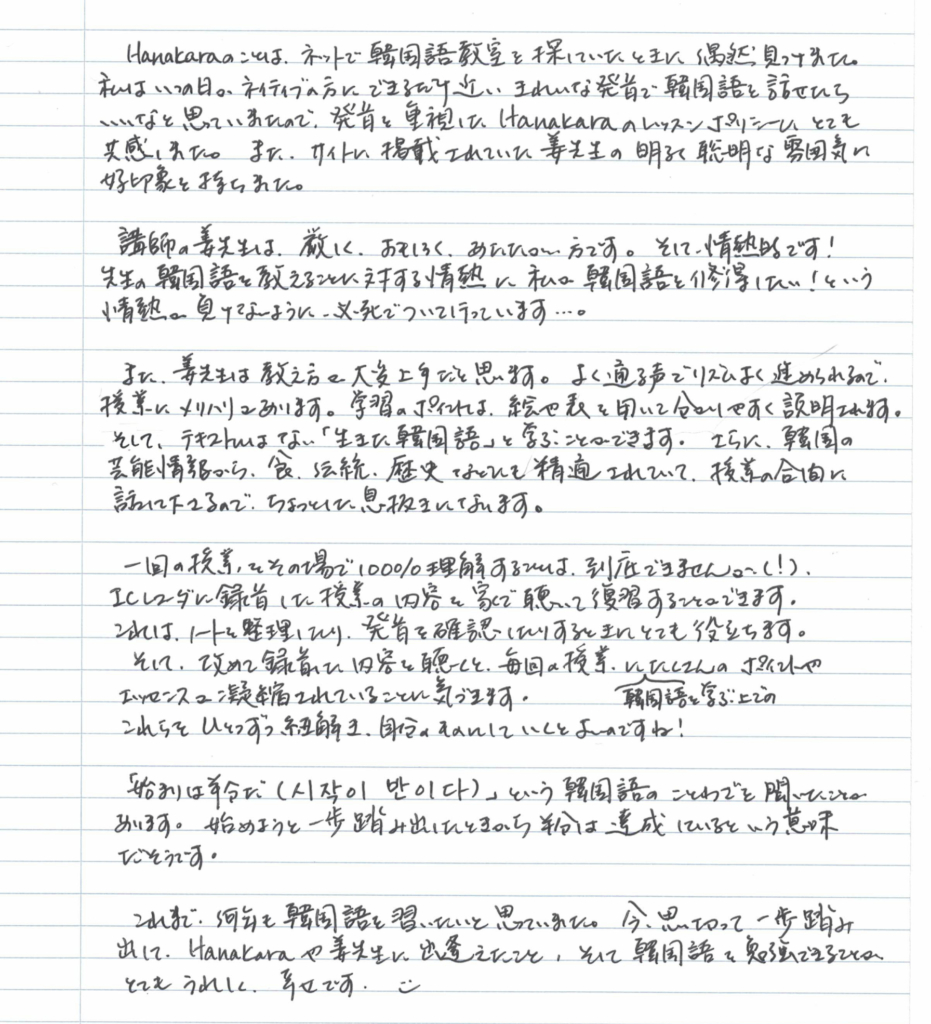 Hanakaraのことは、ネットで韓国語教室を探していたときに偶然見つけました。
私はいつの日か、ネイティブの方にできるだけ近い、きれいな発音で韓国語を話せたら
いいなと思っていましたので、発音を重視したHanakaraのレッスンポリシーに、とても
共感しました。また、サイトに掲載されていた姜先生の明るく聡明な雰囲気に
好印象を持ちました。
講師の姜先生は、厳しく、おもしろく、あたたかい方です。そして、情熱的です!
先生の韓国語を教えることに対する情熱に、私の韓国語を修得したい!という
情熱が負けないように、必死でついて行っています…。
また、姜先生は教え方が大変上手だと思います。よく通る声でリズムよく進められるので、
授業にメリハリがあります。学習のポイントは、絵や表を用いて分かりやすく説明されます。
そして、テキストにはない「生きた韓国語」を学ぶことができます。さらに、韓国の
芸能情報から、食、伝統、歴史などにも精通されていて、授業の合間に
話して下さるので、ちょっとした息抜きになります。
一回の授業をその場で100%理解するのは、到底できませんが(!)、
ICレコーダに録音した授業の内容を家で聴いて復習することができます。
これは、ノートを整理したり、発音を確認したりするときにとても役立ちます。
そして、改めて録音した内容を聴くと、毎回の授業にたくさんのポイントや
エッセンスが凝縮されていることに気づきます。
韓国語を学ぶ上での
これらをひとつずつ紐解き、自分のものにしていくとよいのですね!
「始まりは半分だ(시작이 반이다)」という韓国語のことわざを聞いたことが
あります。始めようと一歩踏み出したときから半分は達成しているという意味
だそうです。
これまで、何年も韓国語を習いたいと思っていました。今、思い切って一歩踏み
出して、Hanakaraや姜先生に出逢えたこと、そして韓国語を勉強できることが
とてもうれしく、幸せです。